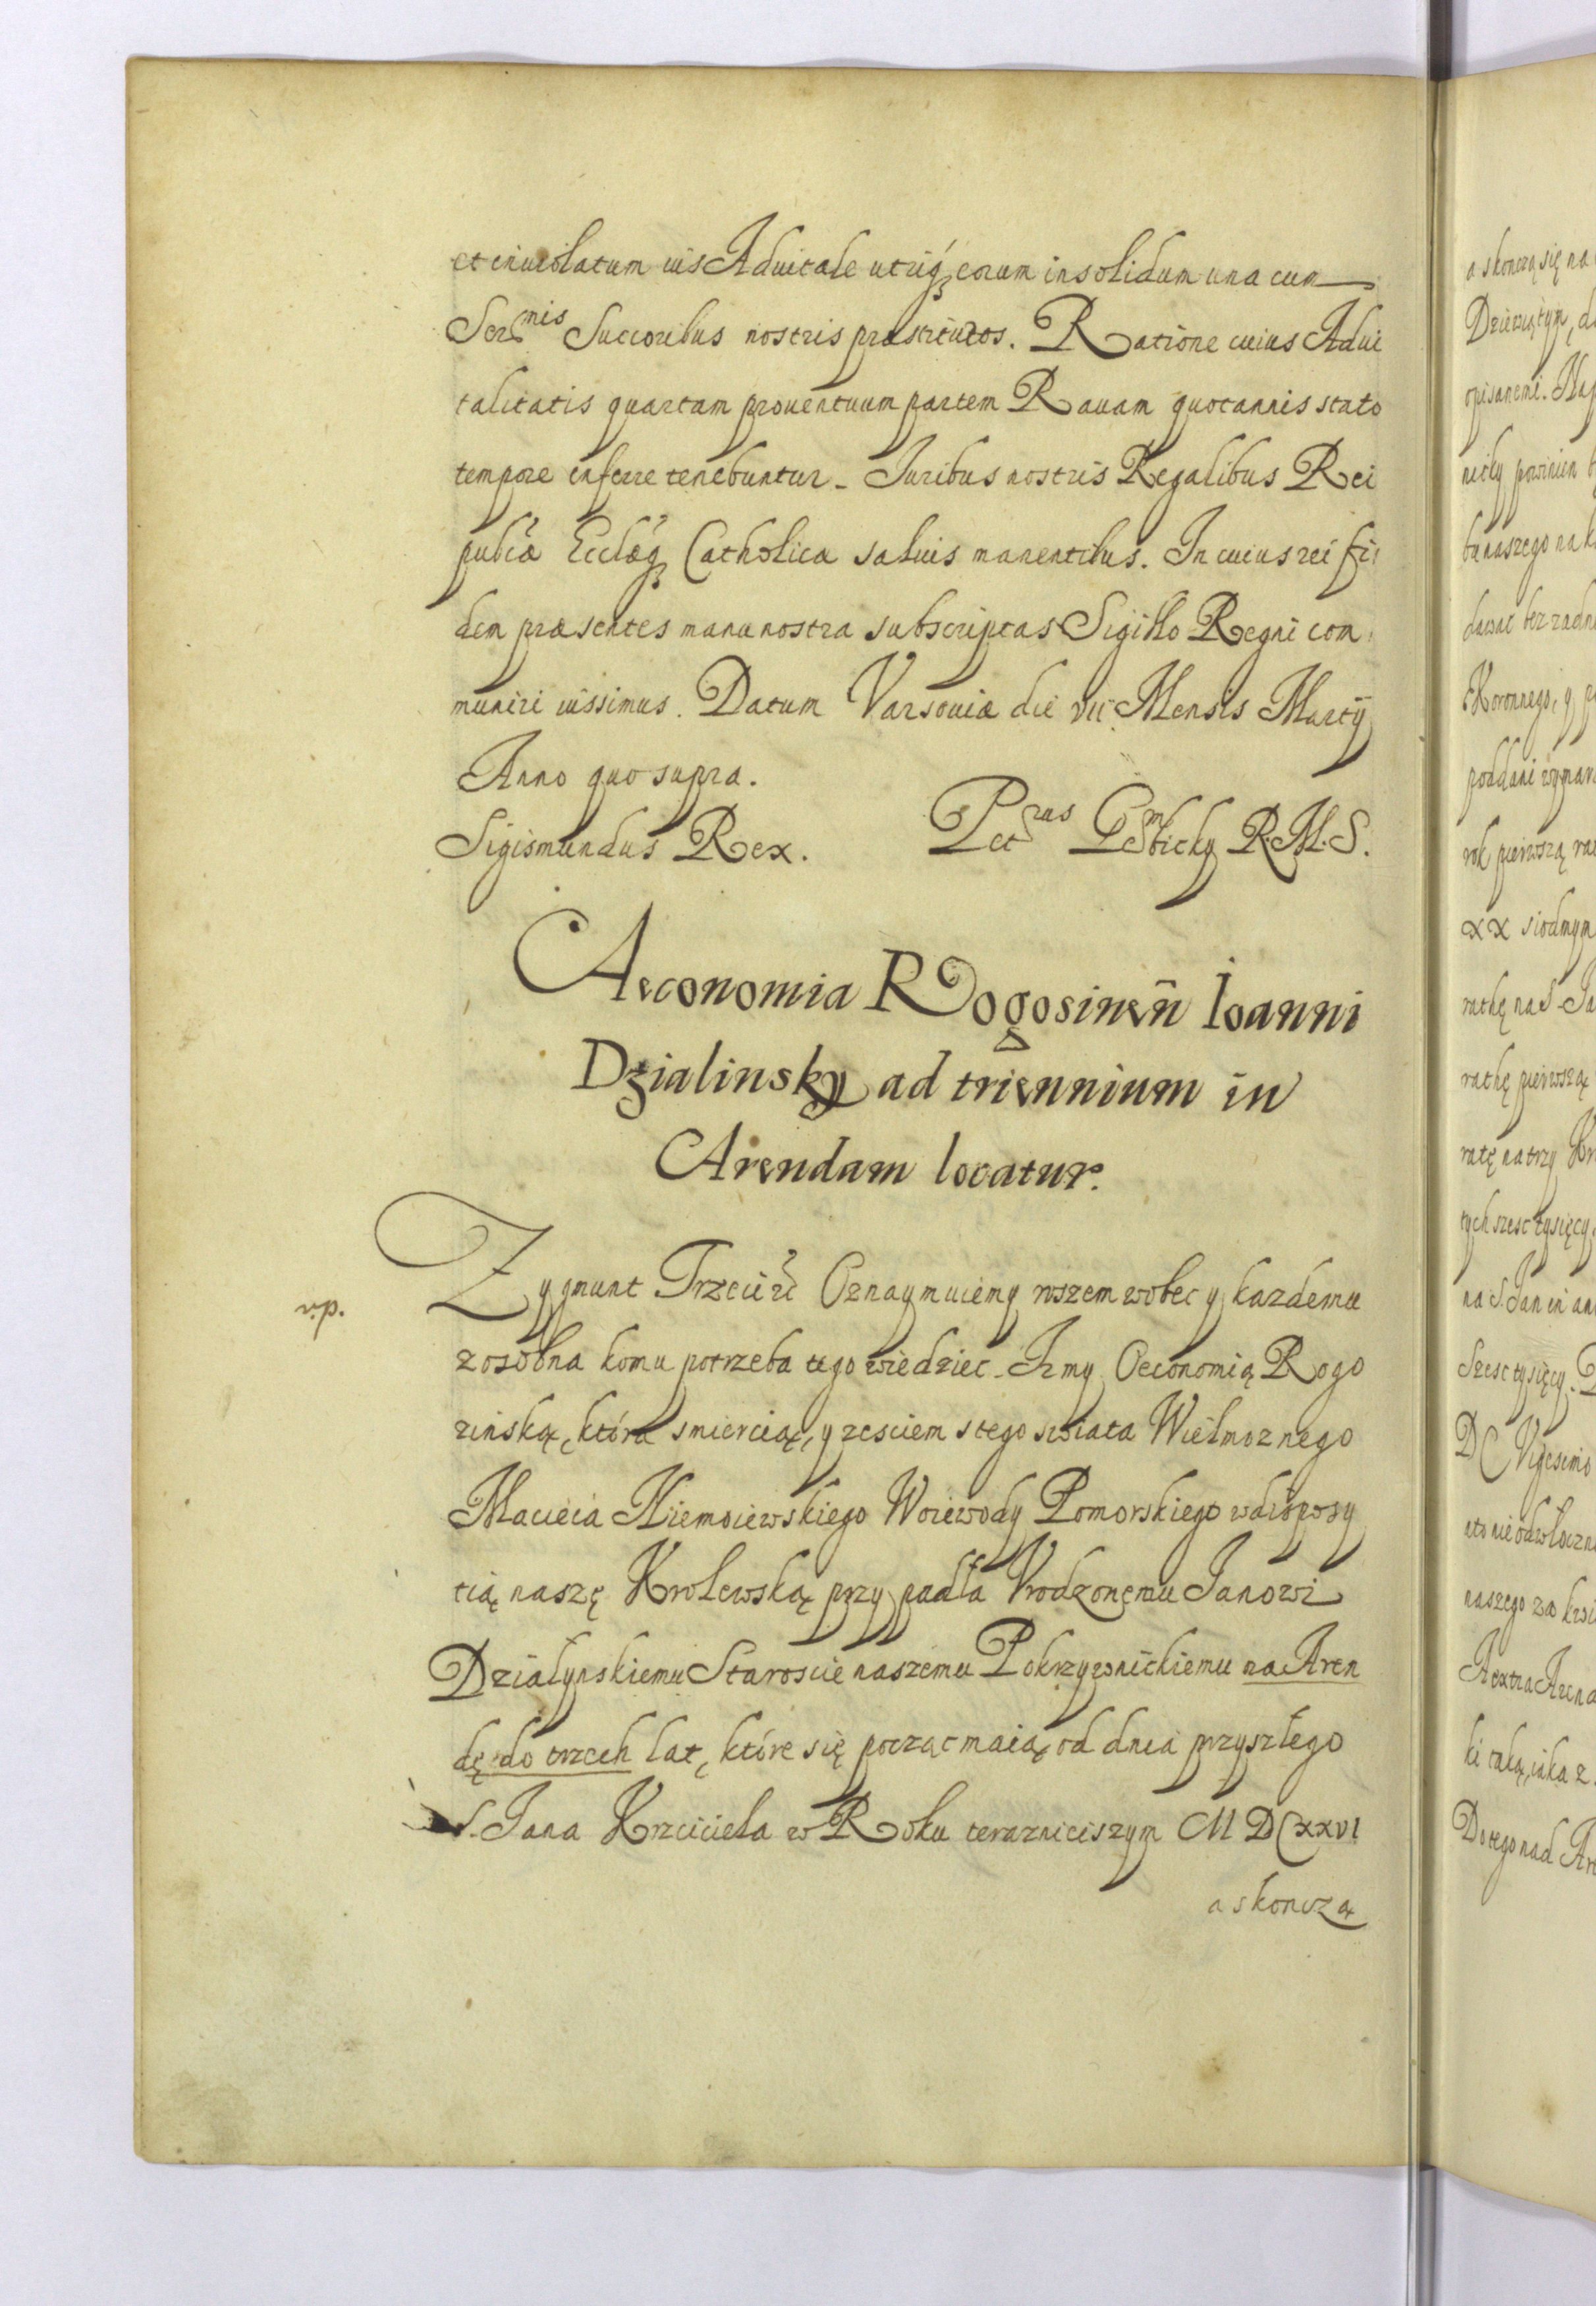 et inuiolatum ius Aduitale utriq́ȝ eorum in solidum una cum
Serᵐⁱˢ Succoribus nostris præstituros. Ratione cuius Adui
talitatis quartam prouentuum partem Rauam quotannis stato
tempore inferre tenebuntur. Iuribus nostris Regalibus Rei
publcæ Ecclæq́ȝ Catholicæ saluis manentibus. In cuius rei fi
dem præsentes manu nostra subscriptas Sigillo Regni com
muniri iussimus. Datum Varsouiæ die vii Mensis Martij
Anno quo supra.
Sigismundus Rex. Petrus Gembicky R.M.S.
Aeconomia Rogosinen̄ Ioanni
Dzialinsky ad triennium in
Arendam locatur.
Zygmunt Trzeci ec̃ Oznaymuiemy wszem wobec y kazdemu
v.p.
zosobna komu potrzeba tego wiedziec. Iz my Oeconomią Rogo
zinską, która smiercią, y zesciem s tego swiata Wielmoznego
Macieia Niemoiewskiego Woiewody Pomorskiego w disposy
tią naszę Krolewską przypadła Vrodzonemu Ianowi
Działynskiemu Staroscie naszemu Pokrzywnickiemu na Aren
dę do trzech lat, które się począc maią od dnia przyszłego
S. Iana Krzciciela w Roku teraznieiszym M DC xxvi
a skonczą
a skonczą się na
Dziewiątym, d
opisanemi.
nicky powinien
bu naszego na k
dawac bez zadn
Koronnego, y
poddani wyman
rok pierwszą ra
xx siodmym
rathę na S. Ia
rathę pierwszą
ratę na trzy Kr
tych szesc tysięcy
na S. Ian in an
Szesc tysięcy.
DC Vigesimo
a to nieodwłoczn
naszego za kwi
A extra Arena
ki taką, iaka z
Do tego nad Are